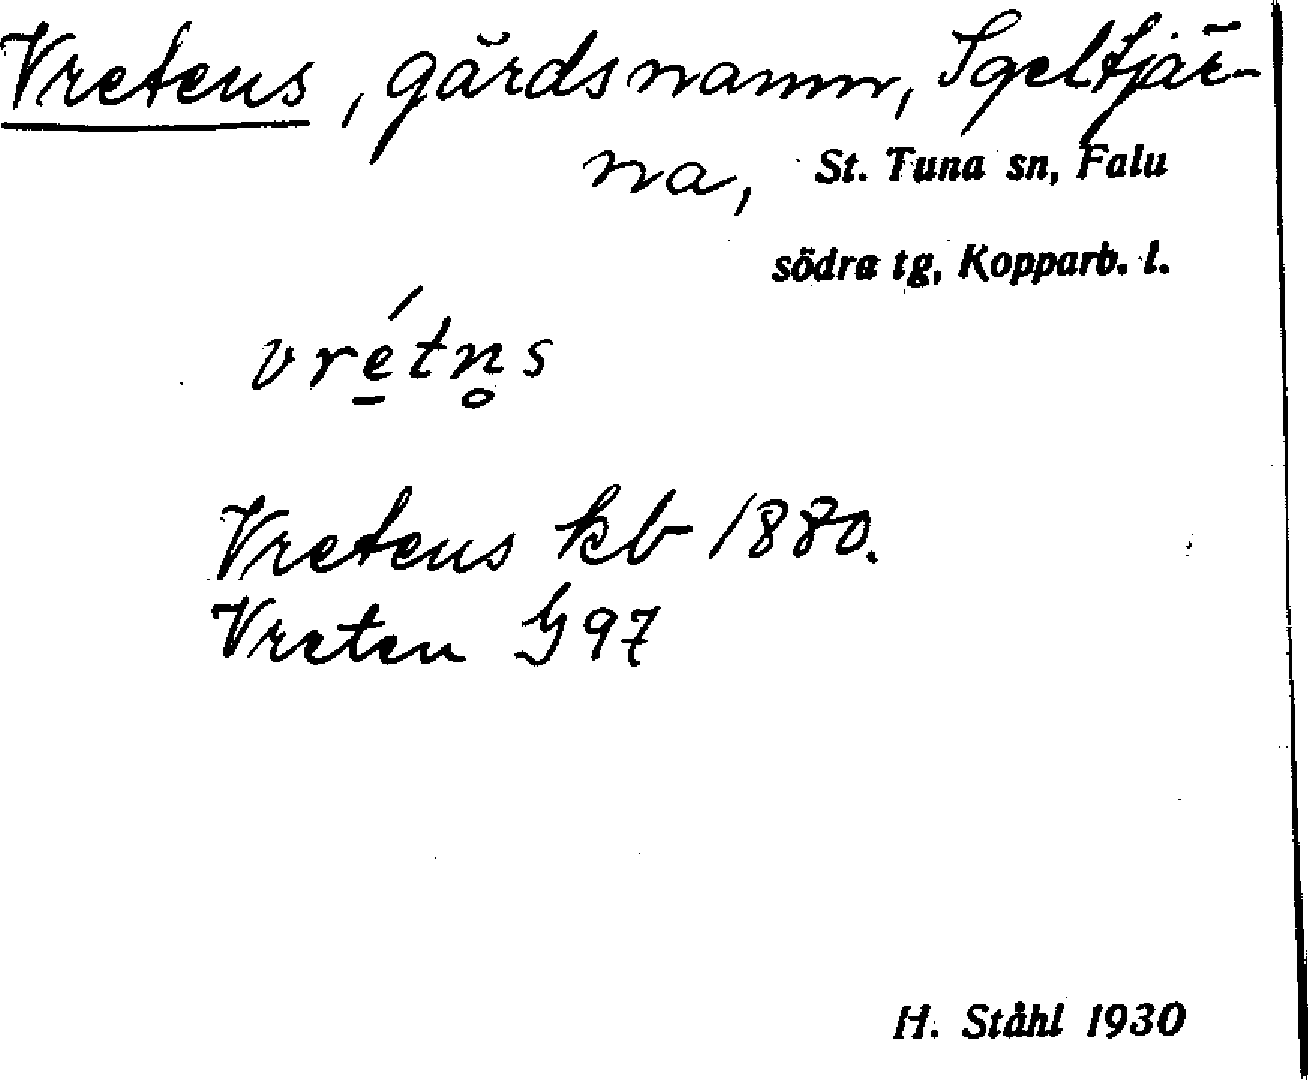 Vretens, gårdsnamn, Igeltjär-
na, St. Tuna sn, Falu
södra tg, Kopparb. l.
vré̱tn̥s
Vretens kb 1880.
Vreten G 97
H. Ståhl 1930